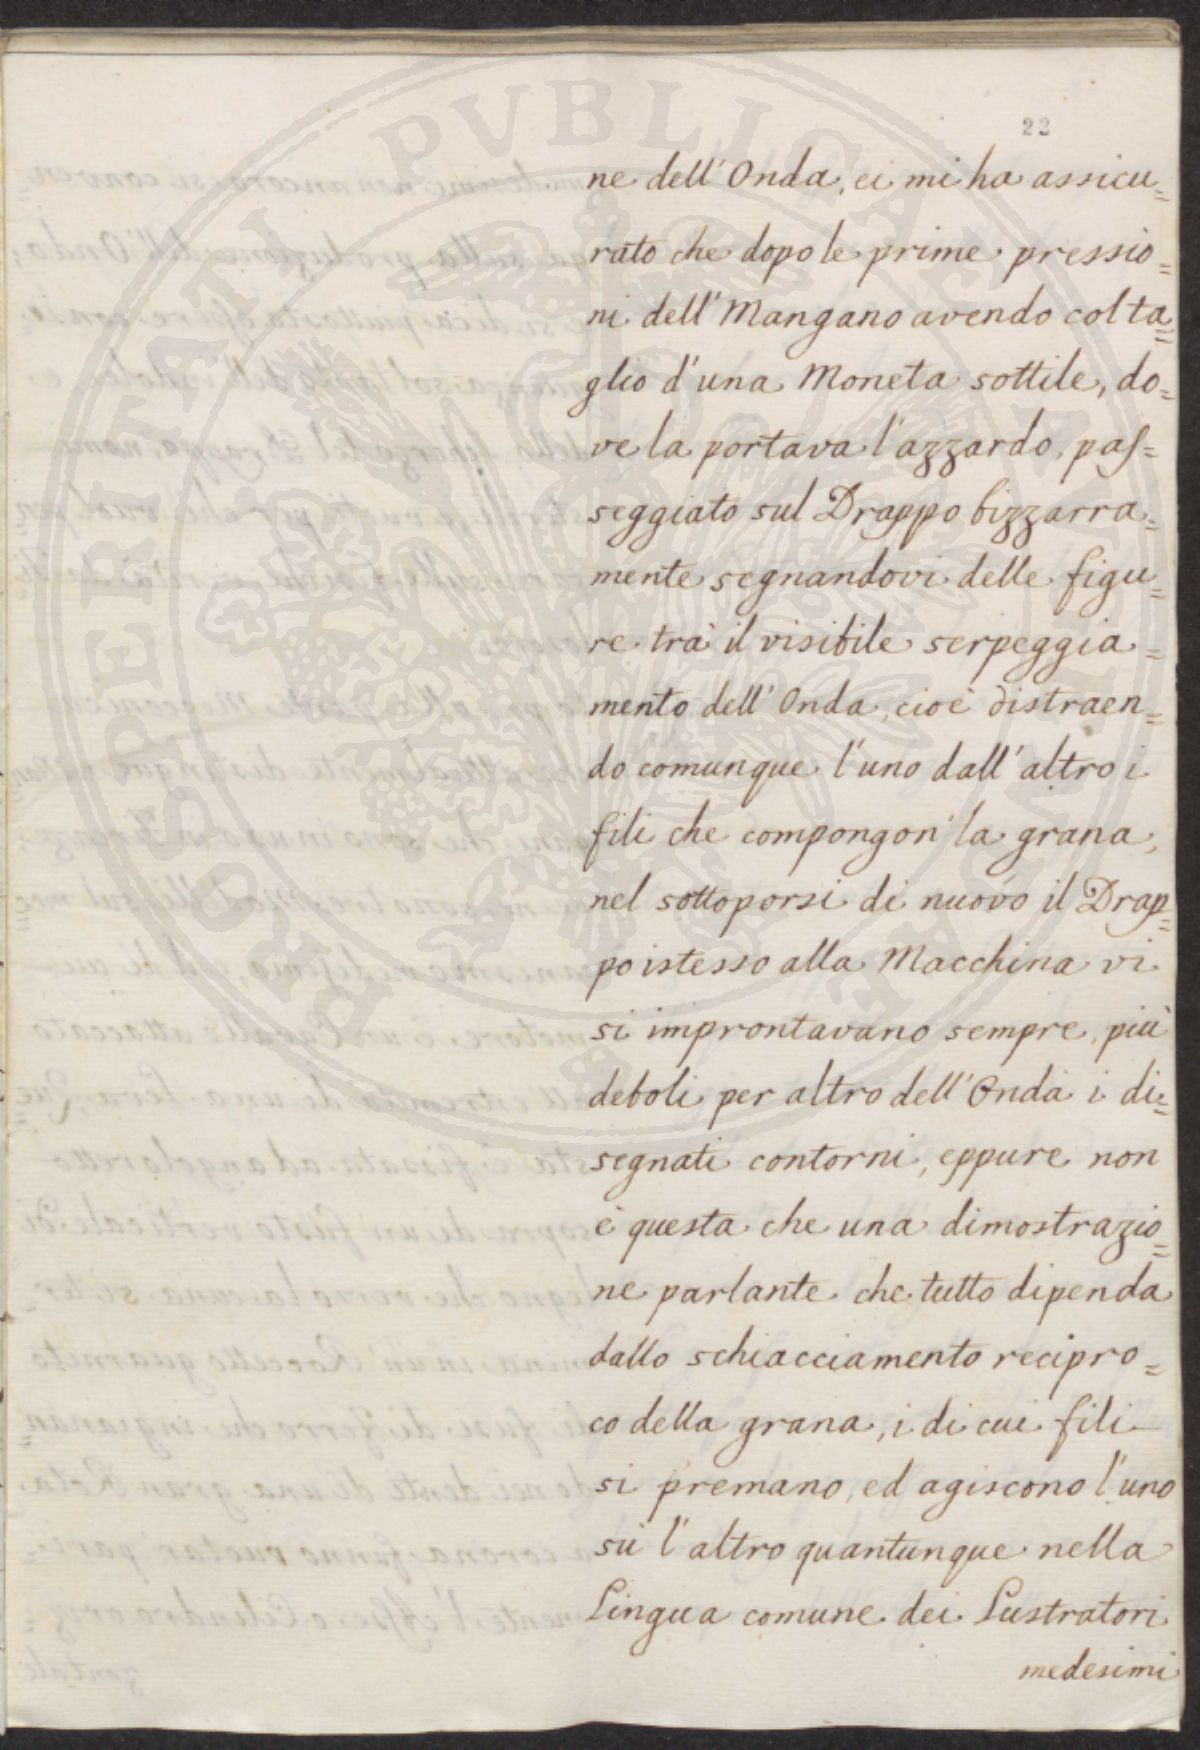 PROSPERITATI PUBLICAE AUGENDAE
22
ne dell'Onda, ei mi ha assicu=
rato che dopo le prime pressio=
ni dell'Mangano avendo col ta=
glio d'una Moneta sottile, do=
ve la portava l'azzardo, pas=
seggiato sul Drappo bizzarra=
mente segnandovi delle figu=
re trà il visibile serpeggia=
mento dell'Onda, cioè distraen=
do comunque l'uno dall'altro i
fili che compongon' la grana,
nel sottoporsi di nuovo il Drap=
po istesso alla Macchina vi
si improntavano sempre, più
deboli per altro dell'Onda i di=
segnati contorni, eppure non
è questa che una dimostrazio=
ne parlante che tutto dipenda
dallo schiacciamento recipro=
co della grana, i di cui fili
si premano, ed agiscono l'uno
sù l'altro quantunque nella
Lingua comune dei Lustratori
medesimi